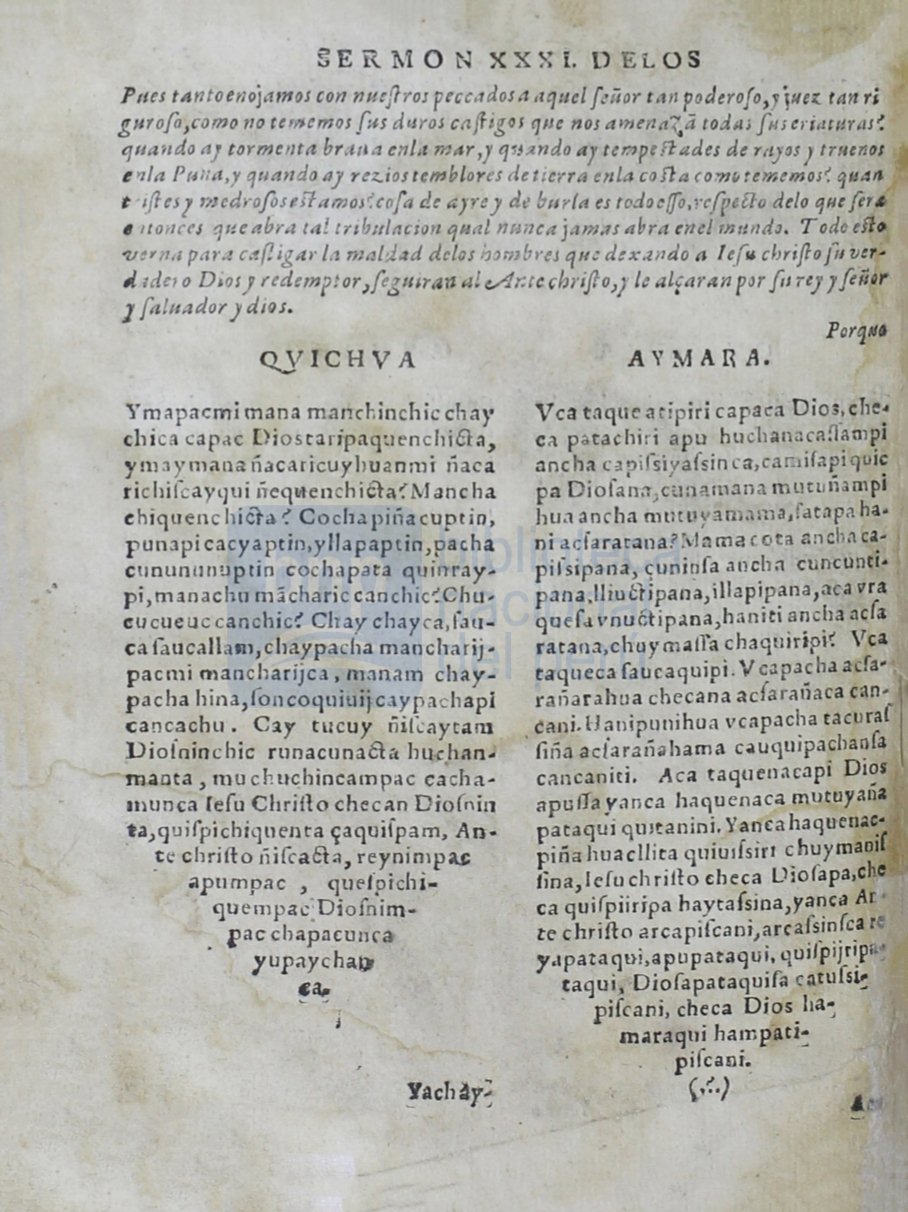 SERMON XXXI. DELOS
Pues tanto enojamos con nueſtros peccados a aquel ſeñor tan poderoſo, y juez tan ri
guroſo, como no tememos ſus duros caſtigos que nos amenazã todas ſus criaturas?
quando ay tormenta braua enla mar, y quando ay tempeſtades de rayos y truenos
enla Puna, y quando ay rezios temblores de tierra enla coſta como tememos? quan
triſtes y medroſos eſtamos? coſa de ayre y de burla es todo eſſo, reſpecto delo que ſera
entonces que abra tal tribulacion qual nunca jamas abra enel mundo. Todo eſto
verna para caſtigar la maldad delos hombres que dexando a Ieſu chriſto ſu ver-
dadero Dios y redemptor, ſeguiran al Antechriſto, y le alçaran por ſu rey y ſeñor
y ſaluador y dios.
Porque
QVICHVA
Ymapacmi mana manchinchic chay
chica capac Dios taripaquenchicta,
ymaymana ñacaricuyhuanmi ñaca
richiſcayqui ñequenchicta? Mancha
chiquenchicta? Cocha piñacuptin,
punapi cacyaptin, yllapaptin, pacha
cunununuptin cochapata quinray-
pi, manachu mãcharic canchic? Chu-
cucucuc canchic? Chay chayca, ſau-
ca ſaucallam, chaypacha mancharij-
pacmi mancharijca, manam chay-
pacha hina, ſoncoquiuij caypachapi
cancachu. Cay tucuy ñiſcaytam
Dioſninchic runacunacta huchan-
manta, muchuchincampac cacha-
munca Ieſu Chriſto checan Dioſnin
ta, quiſpichiquenta çaquiſpam, An-
te chriſto ñiſcacta, reynimpac
apumpac, queſpichi-
quempac Dioſnim-
pac chapacunca
yupaychan
ca.
Yachay-
AYMARA.
Vca taque atipiri capaca Dios, che-
ca patachiri apu huchanacaſſampi
ancha capiſsiyaſsinca, camiſapi quic
pa Dioſana, cunamana mutuñampi
hua ancha mutuyamama, ſatapa ha-
ni acſaratana? Mama cota ancha ca-
piſsipana, çuninſa ancha cuncunti-
pana, lliuctipana, illapipana, aca vra
queſa vnuctipana, haniti ancha acſa
ratana, chuymaſſa chaquiripi? Vca
taqueca ſaucaquipi. Vcapacha acſa-
rañarahua checana acſarañaca can-
cani. Hanipunihua vcapacha tacuraſ
ſiña acſarañahama cauquipachanſa
cancaniti. Aca taquenacapi Dios
apuſſa yanca haquenaca mutuyaña
pataqui quitanini. Yanca haquenac-
piña huacllita quiuiſsiri chuymaniſ
ſina, Ieſu chriſto checa Dioſapa, che
ca quiſpiiripa haytaſsina, yanca An
te chriſto arcapiſcani, arcaſsinſca re
yapataqui, apupataqui, quiſpijripa
taqui, Dioſapataquiſa catuſsi-
piſcani, checa Dios ha-
maraqui hampati-
piſcani.
(.·.)